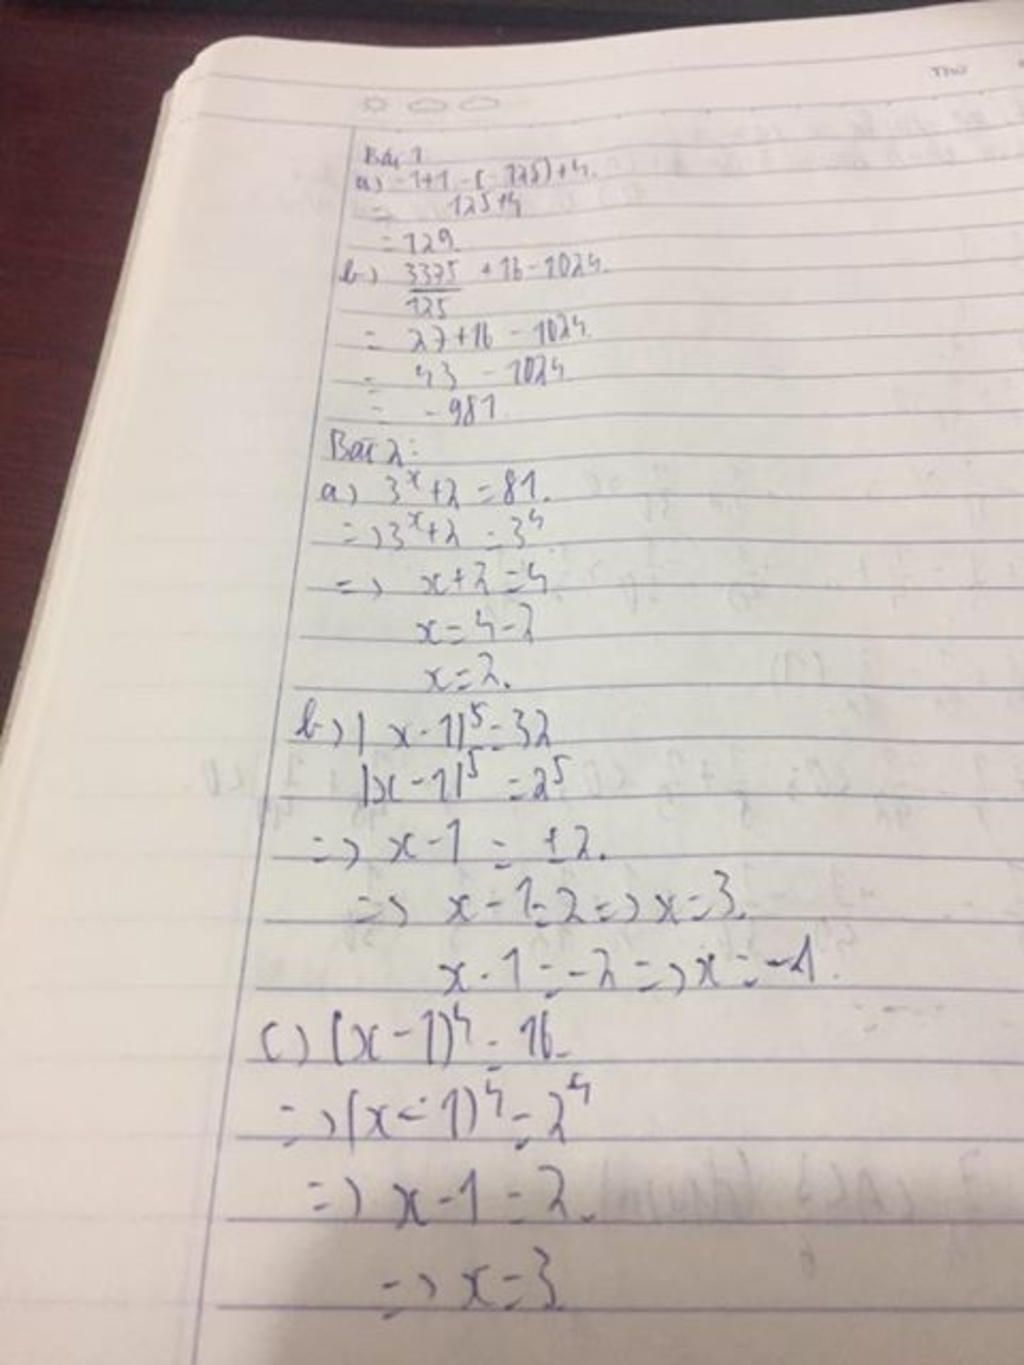 Bài 1
a) -1+1-(-125)+4.
= 125+4
= 129.
b) 3375/125 + 16 - 1024.
= 27+16 - 1024.
= 43 - 1024
= -981.
Bài 2:
a) 3^x+2 = 81.
=> 3^x+2 = 3^4
=> x+2 = 4
x = 4-2
x = 2.
b) |x-1|^5 = 32
|x-1|^5 = 2^5
=> x-1 = ±2.
=> x-1=2 => x=3.
x-1=-2 => x=-1.
c) (x-1)^4 = 16
=> (x-1)^4 = 2^4
=> x-1 = 2.
=> x = 3